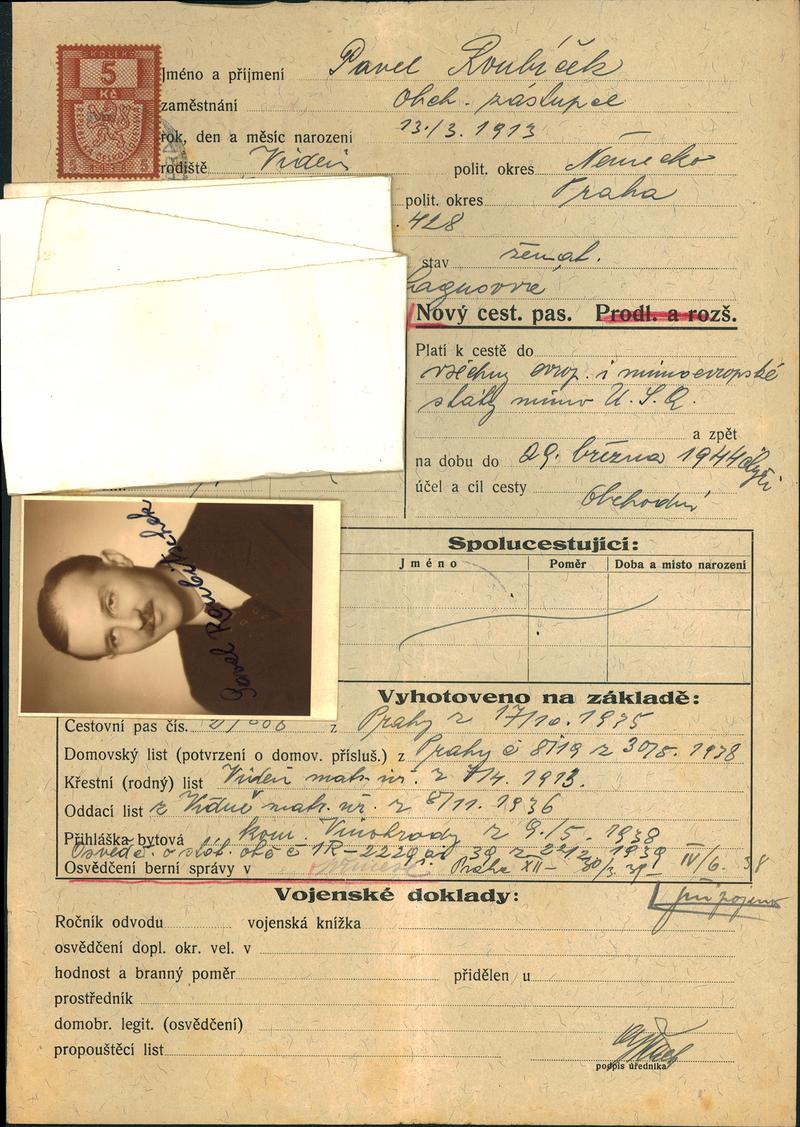 KOLEK
5
Kč
Jméno a příjmení Pavel Roubíček
zaměstnání Obch. zástupce
rok, den a měsíc narození 13./3. 1913
rodiště Vídeň polit. okres Německo
polit. okres Praha
428
stav ženat.
Nový cest. pas. Prodl. a rozš.
Platí k cestě do
všechny evrop. i mimoevropské
státy mimo U.S.A.
a zpět
na dobu do 29. března 1944
účel a cíl cesty Obchodní
Spolucestující:
Jméno Poměr Doba a místo narození
Pavel Roubitschek
Vyhotoveno na základě:
Cestovní pas čís. z Prahy z 17/10. 1935
Domovský list (potvrzení o domov. přísluš.) z Prahy č 8119 z 30/5. 1938
Křestní (rodný) list Vídeň matr. úř. z 7/4. 1913.
Oddací list z Vídně matr. úř. z 8/11. 1936
Přihláška bytová kom. Vinohrady z 9./5. 1938
Osvědč. o stát. obč č 1R-2229 39 z 22/2 1939
Osvědčení berní správy v Praha XII- IV/6. 38
připojeno
Vojenské doklady:
Ročník odvodu vojenská knížka
osvědčení dopl. okr. vel. v
hodnost a branný poměr přidělen u
prostředník
domobr. legit. (osvědčení)
propouštěcí list
podpis úředníka